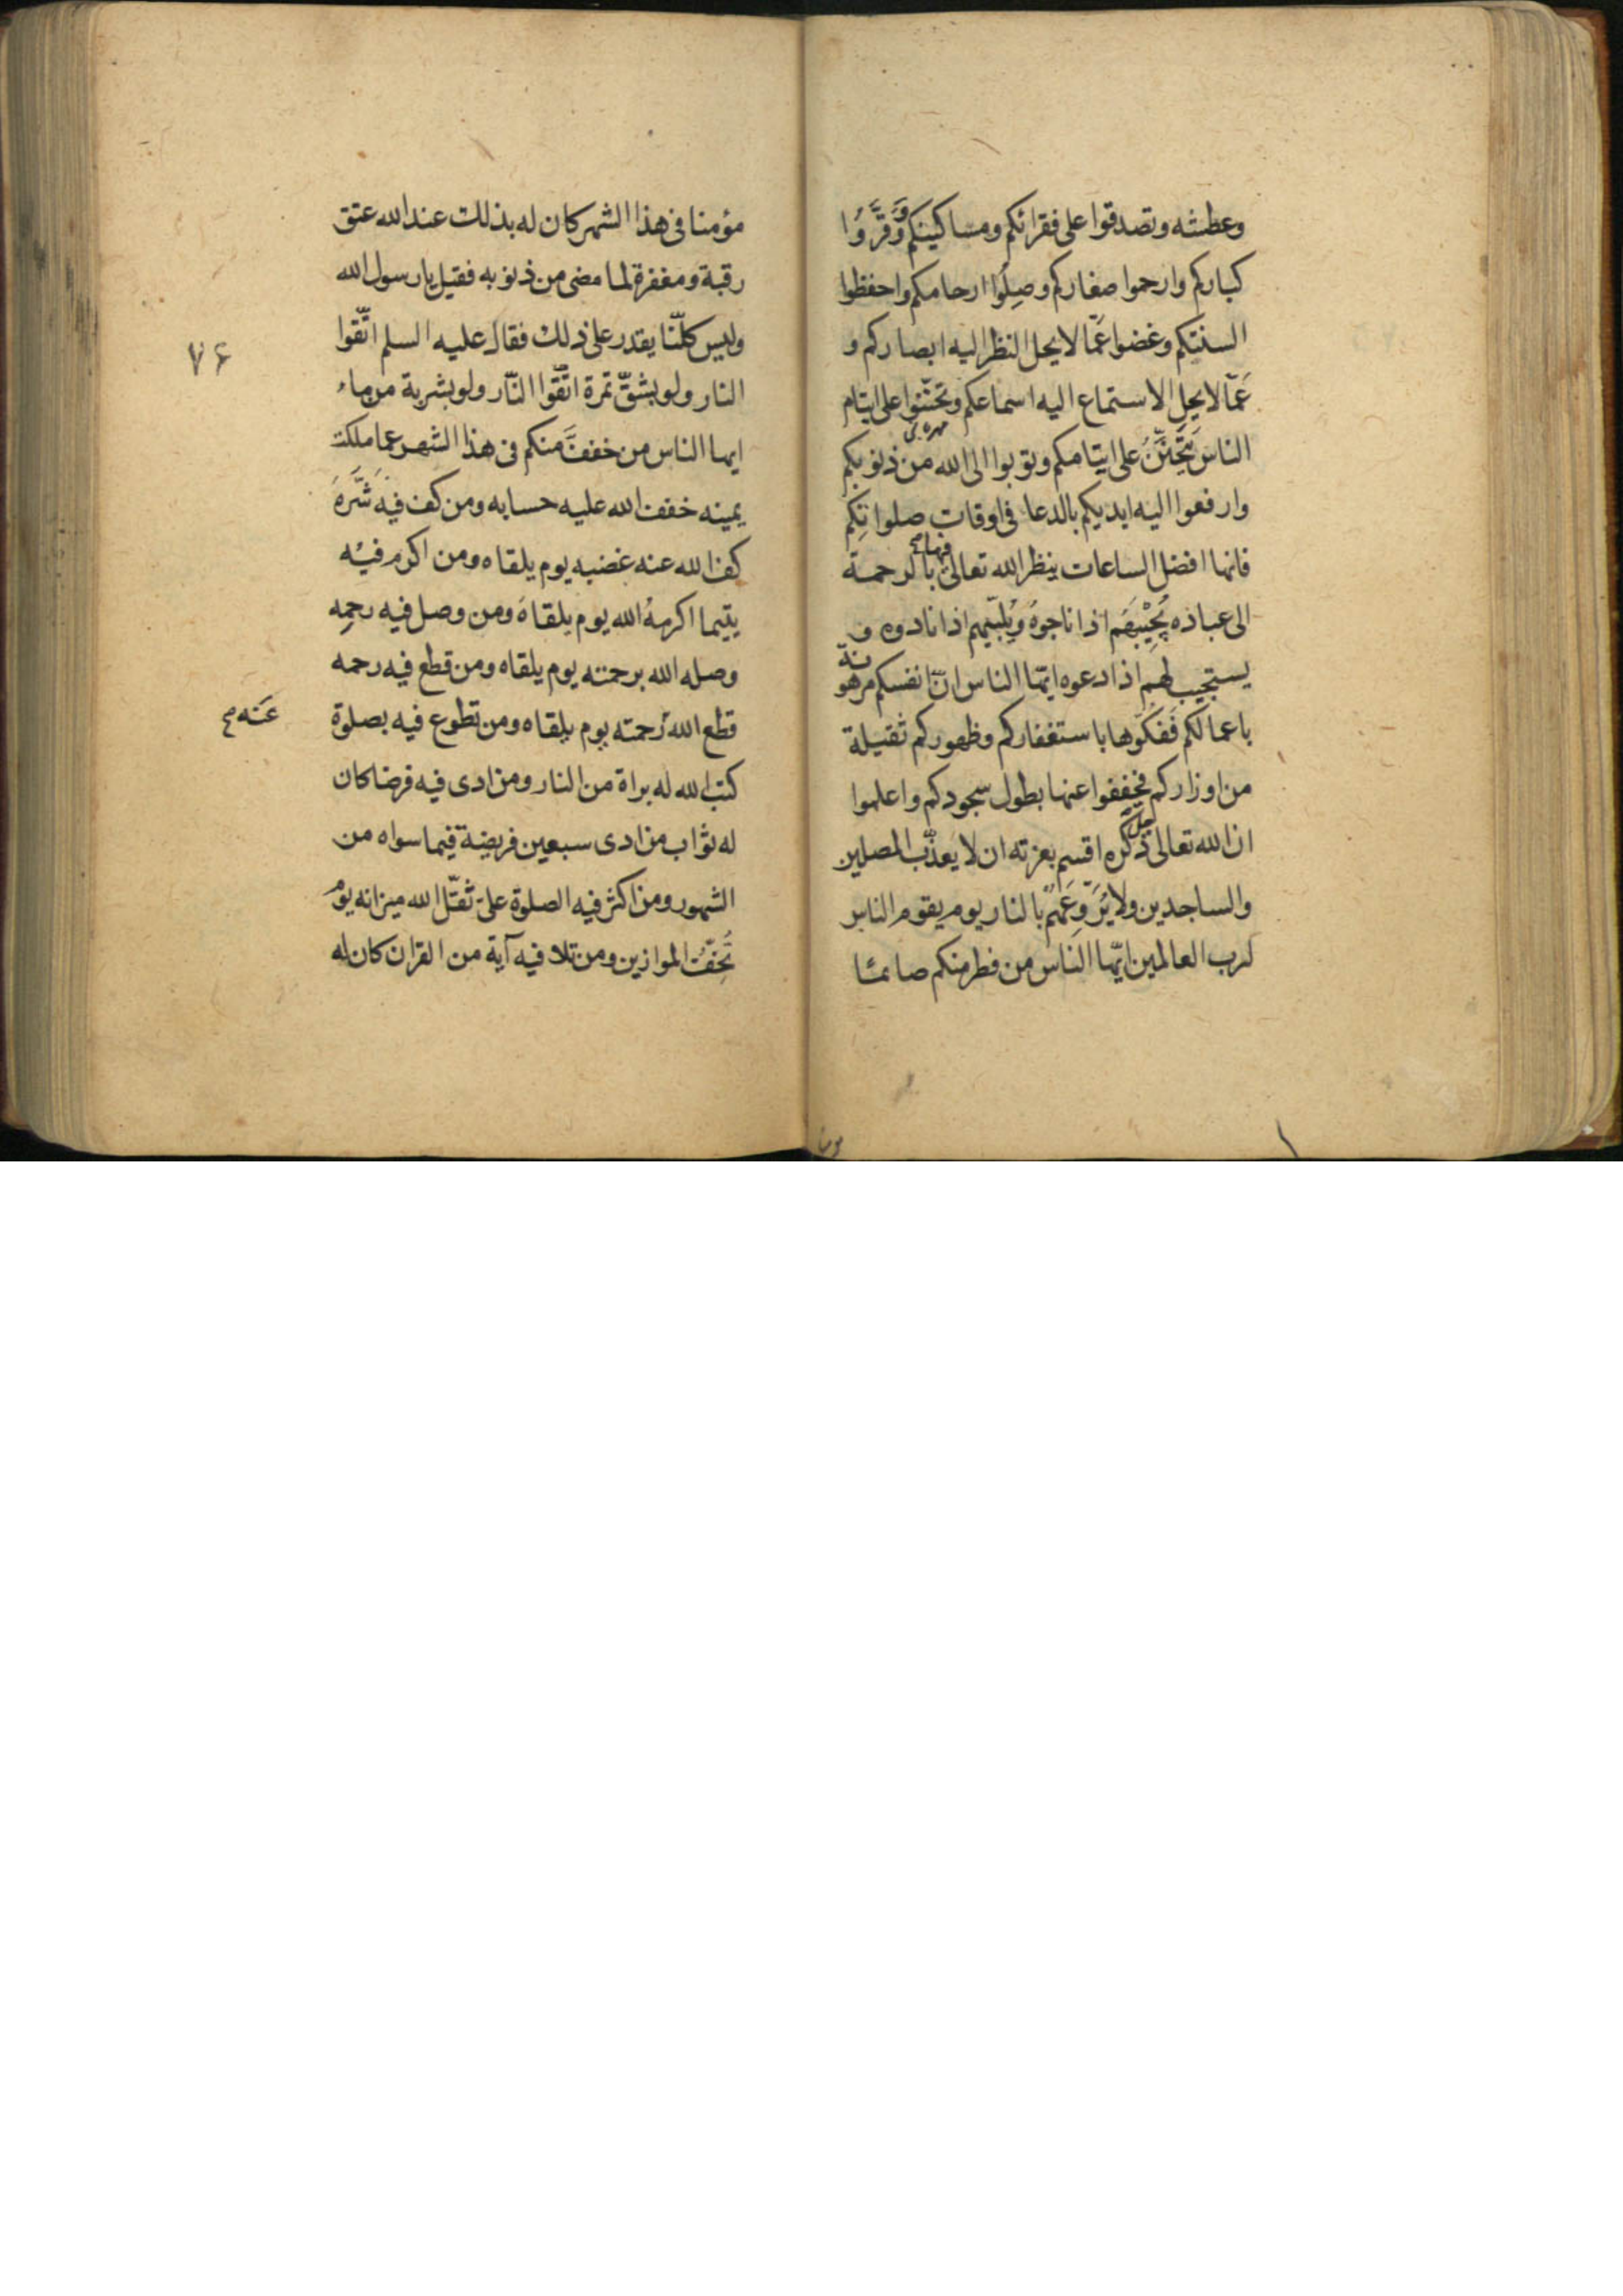 وعطشه وتصدقوا على فقرائكم ومساكينكم وَوَقِّرُوا
كباركم وارحموا صغاركم وصِلُوا ارحامكم واحفظوا
السنتكم وغضوا عَمّا لا يحل النظر اليه ابصاركم و
عَمّا لا يحل الاستماع اليه اسماعكم وتحنّنوا على ايتام
الناس يُتَحَنَّنُ على ايتامكم وتوبوا الى الله من ذنوبكم
وارفعوا اليه ايديكم بالدعا فى اوقات صلواتِكم
فانها افضل الساعات ينظر الله تعالى فيها بالرحمة
الى عباده يُجِيْبُهَم اذا ناجوهُ وَيُلَبّيهم اذا نادوه و
يستجيب لهم اذا دعوه ايّها الناس انّ انفسكم مرهونة
باعمالكم فَفكّوها باستغفاركم وظهوركم ثقيلة
من اوزاركم فخففوا عنها بطول سجودكم واعلموا
ان الله تعالى جل ذكره اقسم بعزته ان لا يعذّب المصلين
والساجدين ولا يُرَوِّعَهُم بالنار يوم يقوم الناس
لرب العالمين ايّها الناس من فطر منكم صائما
مؤمنا فى هذا الشهر كان له بذلك عند الله عتق
رقبة ومغفرة لما مضى من ذنوبه فقيل يا رسول الله
وليس كلّنا يقدر على ذلك فقال عليه السلم اتّقوا
۷۶
النار ولو بشقّ تمرة اتّقوا النّار ولو بشربة من ماء
ايها الناس من خففَّ منكم فى هذا الشهر عما ملكت
يمينه خفف الله عليه حسابه ومن كف فيه شَرَّهَ
كف الله عنه غضبه يوم يلقاه ومن اكرم فيْه
يتيما اكرمهُ الله يوم يلقاهَ ومن وصل فيه رحِمِه
وصله الله برحمته يوم يلقاه ومن قطع فيه رحمه
قطع الله رحمته يوم يلقاه ومن تطوع فيه بصلوة
عَنه صح
كتب الله له براة من النار ومن ادى فيه فرضا كان
له ثواب من ادى سبعين فريضة فيما سواه من
الشهور ومن اكثر فيه الصلوة علىّ ثقّل الله ميزانه يوم
تُخِفّ الموازين ومن تلا فيه آية من القران كان له